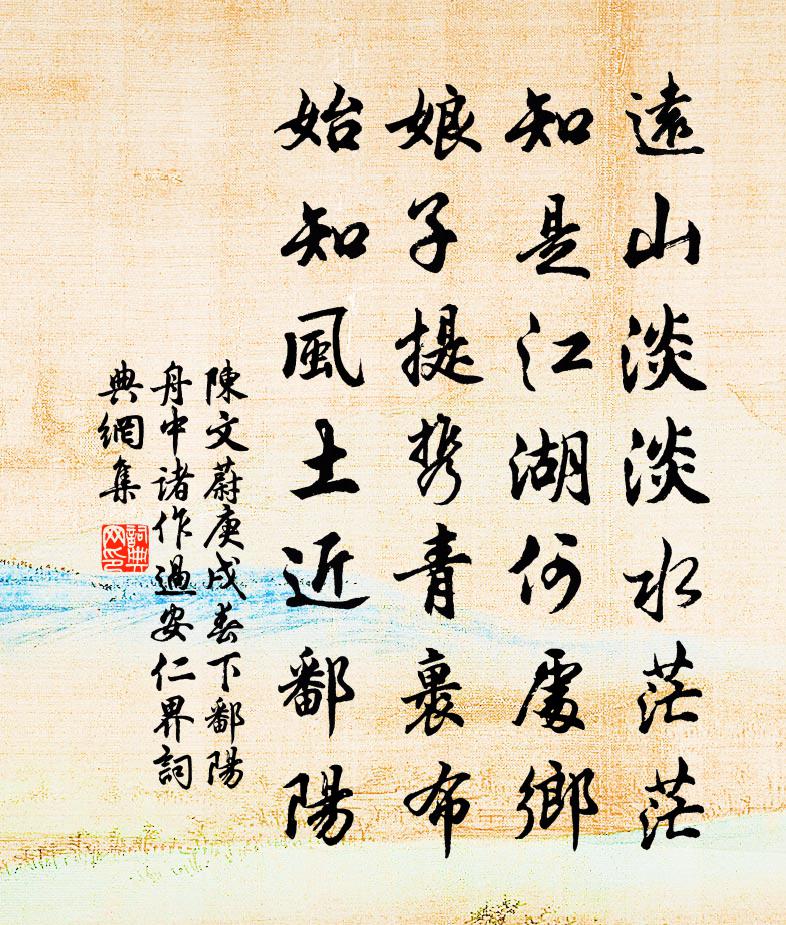 遠山淡淡水茫茫
知是江湖何處鄉
娘子提携青裹布
始知風土近鄱陽
陳文蔚庚戌春下鄱陽
舟中諸作過安仁界詞
典網集
詞典
网印